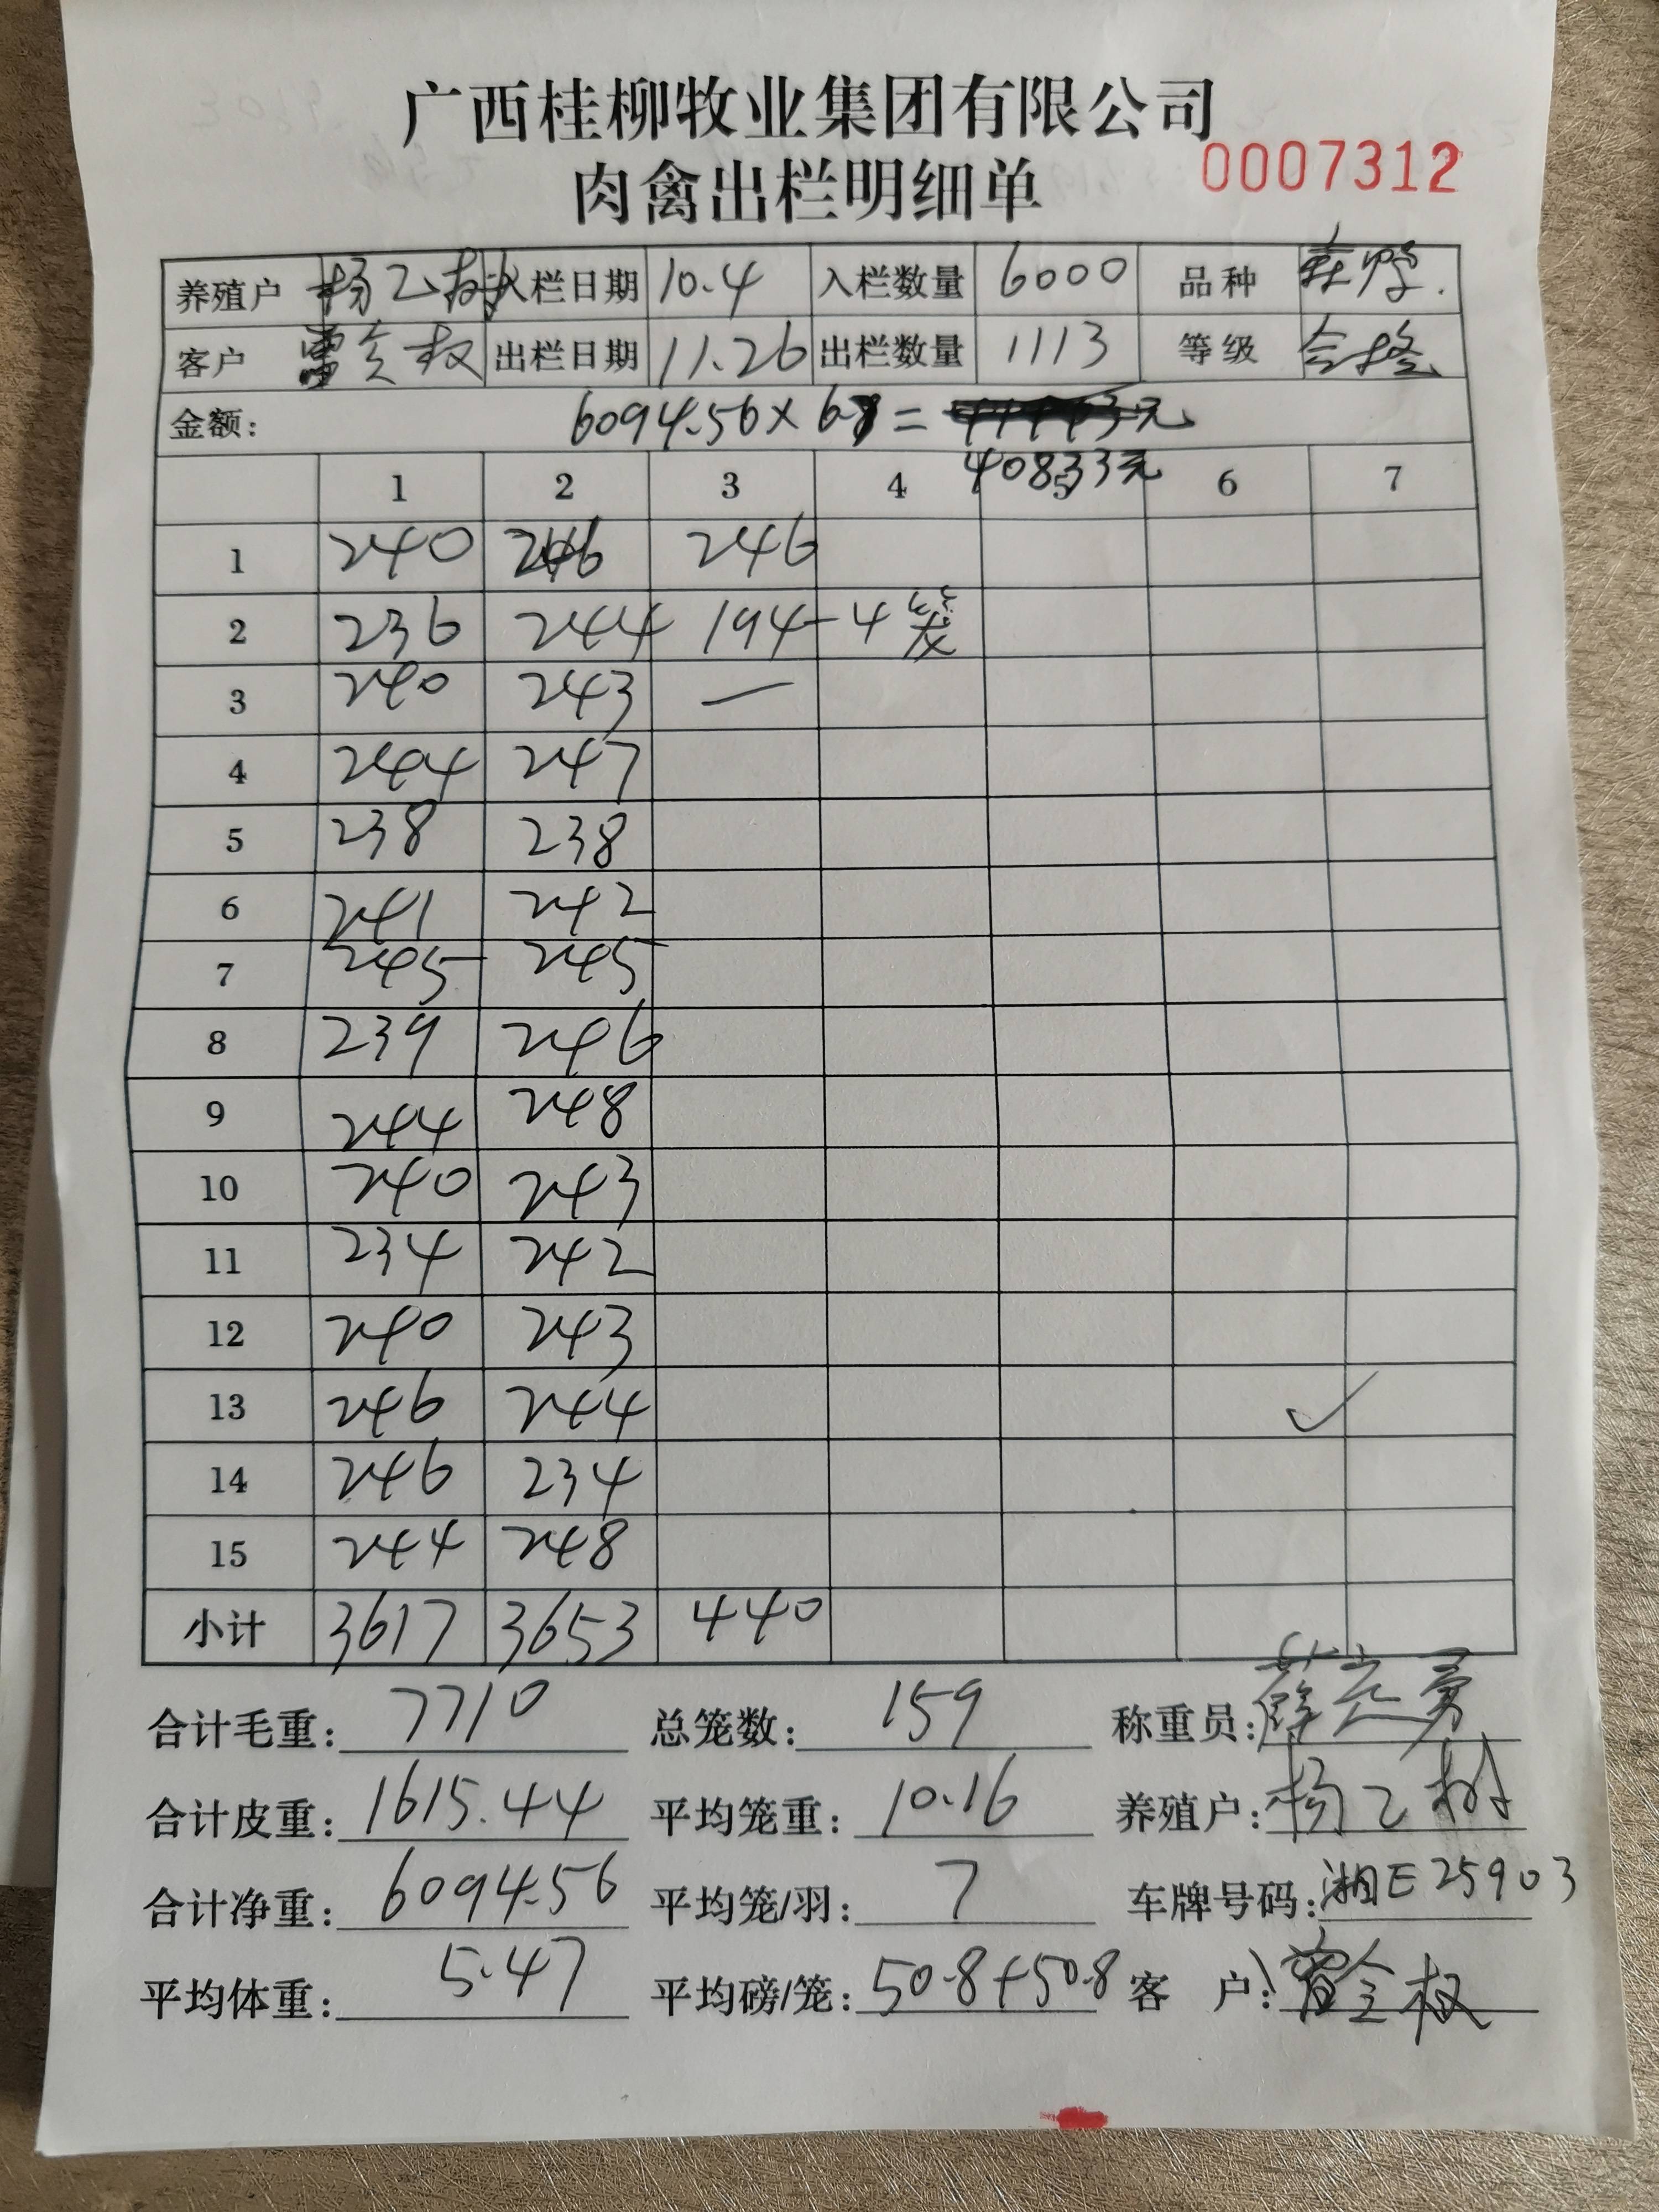 广西桂柳牧业集团有限公司
肉禽出栏明细单 0007312
养殖户 杨乙树 入栏日期 10.4 入栏数量 6000 品种
客户 出栏日期 11.26 出栏数量 1113 等级 合格
金额: 6094.56× = 元
40833元
1 2 3 4 5 6 7
1 240 246 246
2 236 244 194-4笼
3 240 243 —
4 244 247
5 238 238
6 241 242
7 245 245
8 239 246
9 244 248
10 240 243
11 234 242
12 240 243
13 246 244 ✓
14 246 234
15 244 248
小计 3617 3653 440
合计毛重: 7710 总笼数: 159 称重员: 薛
合计皮重: 1615.44 平均笼重: 10.16 养殖户: 杨乙树
合计净重: 6094.56 平均笼/羽: 7 车牌号码: 湘E25903
平均体重: 5.47 平均磅/笼: 50.8+50.8 客 户: